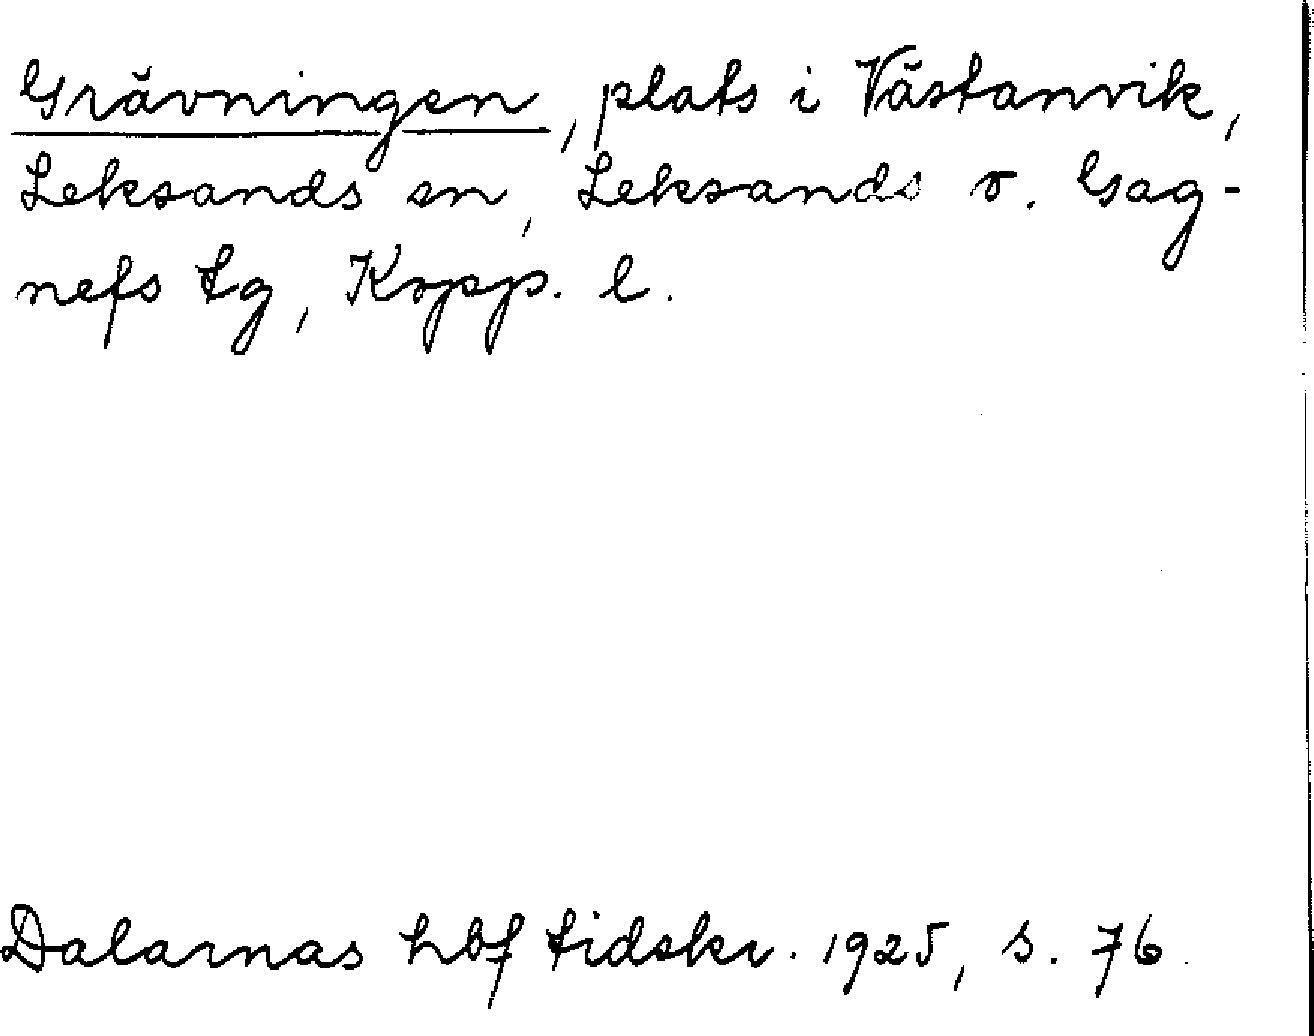 Grävningen, plats i Västanvik,
Leksands sn, Leksands o. Gag-
nefs tg, Kopp. l.
Dalarnas hbf tidskr. 1925, s. 76.